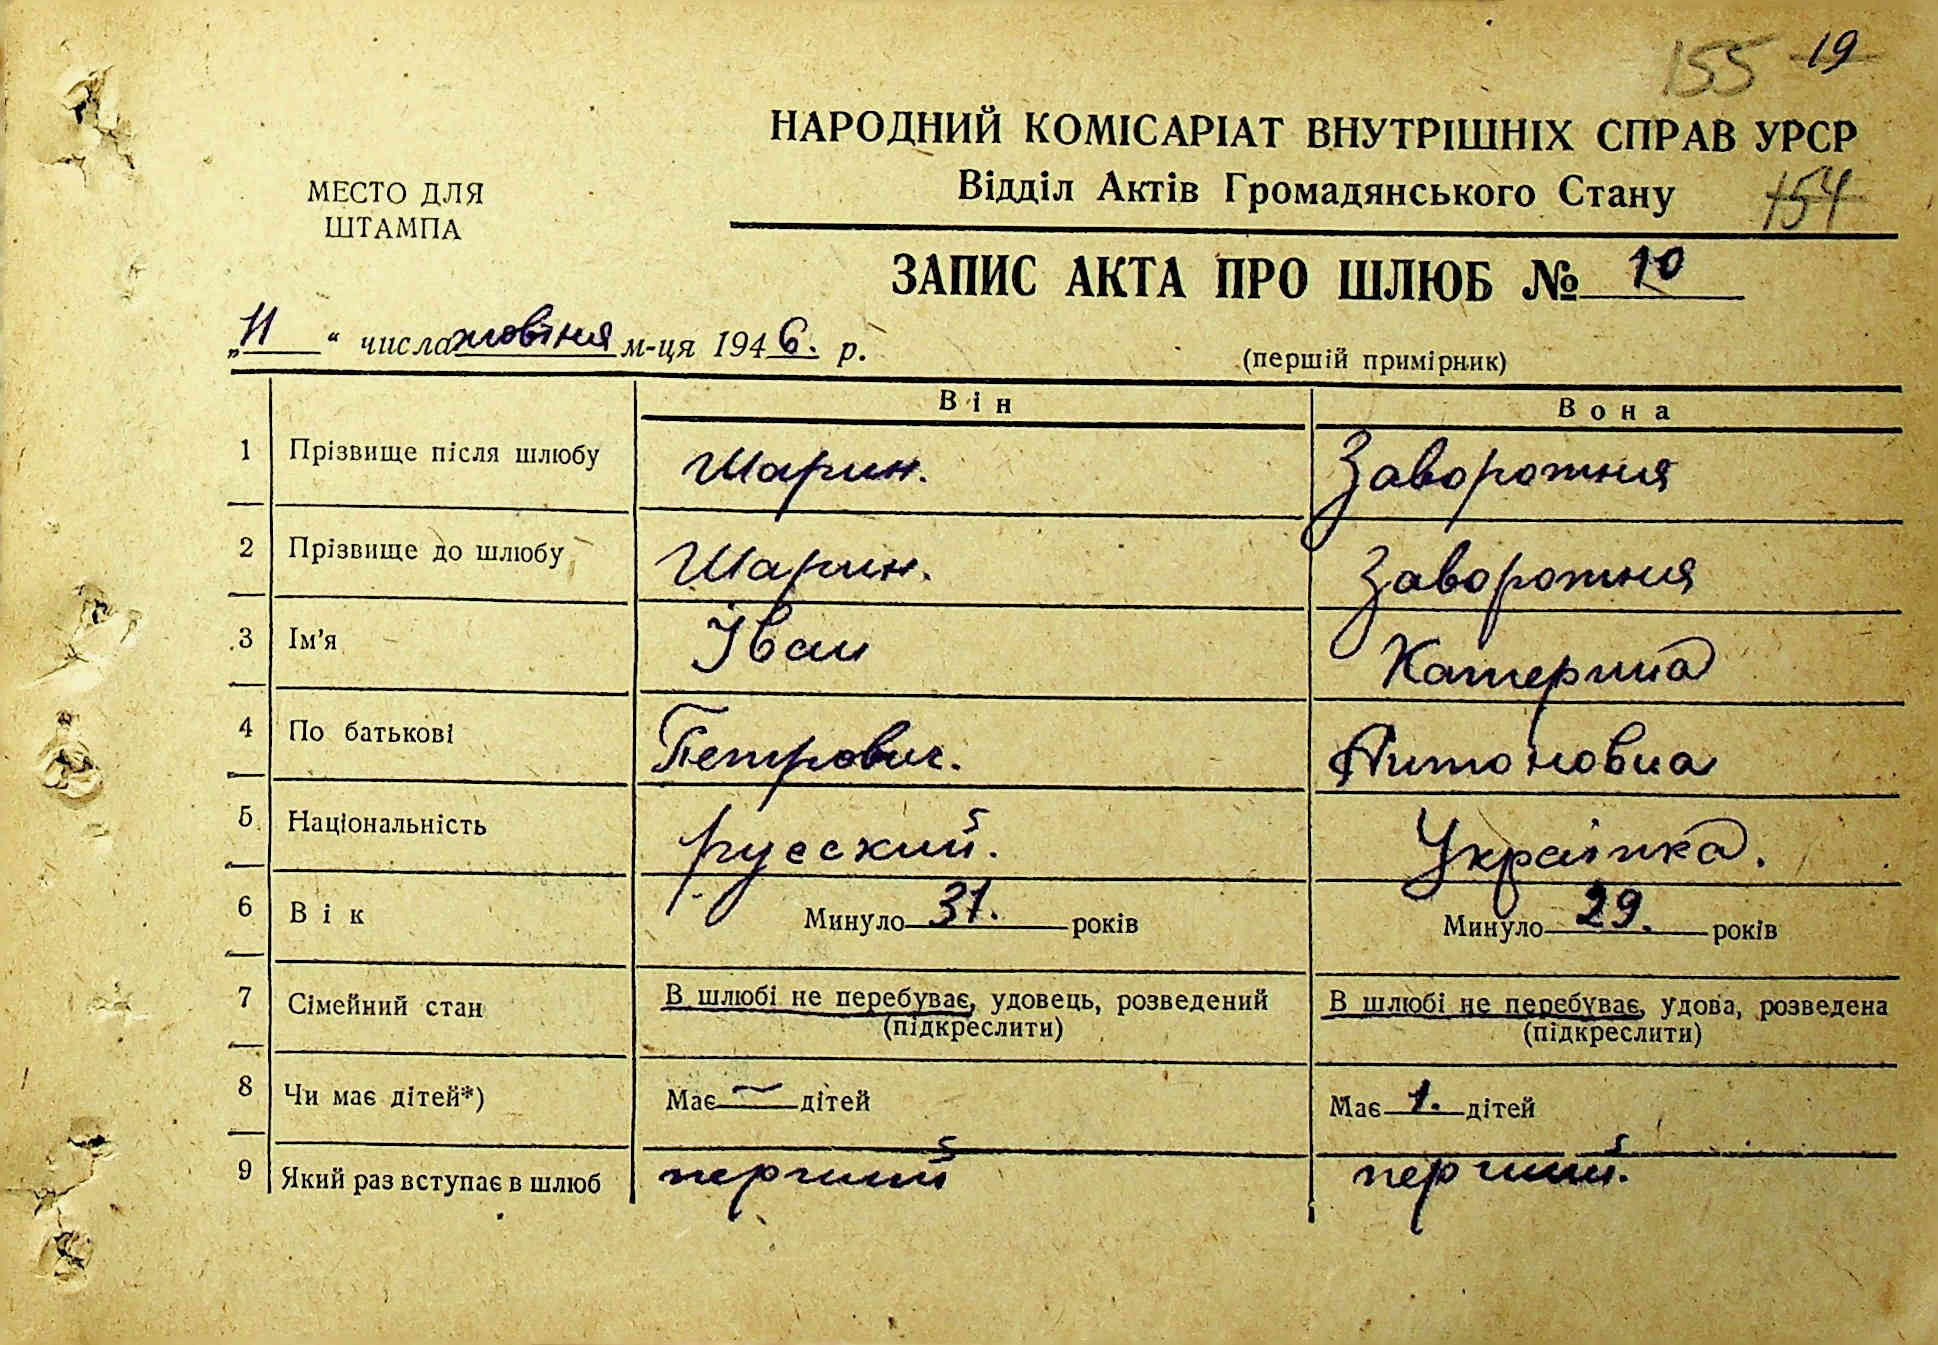 155 19
НАРОДНИЙ КОМІСАРІАТ ВНУТРІШНІХ СПРАВ УРСР
Відділ Актів Громадянського Стану 154
МЕСТО ДЛЯ
ШТАМПА
ЗАПИС АКТА ПРО ШЛЮБ № 10
„11“ числа жовтня м-ця 1946. р.
(першій примірник)
Він Вона
1 Прізвище після шлюбу Шарин. Заворотня
2 Прізвище до шлюбу Шарин. Заворотня
3 Ім'я Іван Катерина
4 По батькові Петрович. Антоновна
5 Національність русский. Українка.
6 Вік Минуло 31. років Минуло 29. років
7 Сімейний стан В шлюбі не перебуває, удовець, розведений В шлюбі не перебуває, удова, розведена
(підкреслити) (підкреслити)
8 Чи має дітей*) Має — дітей Має 1. дітей
9 Який раз вступає в шлюб перший перший.